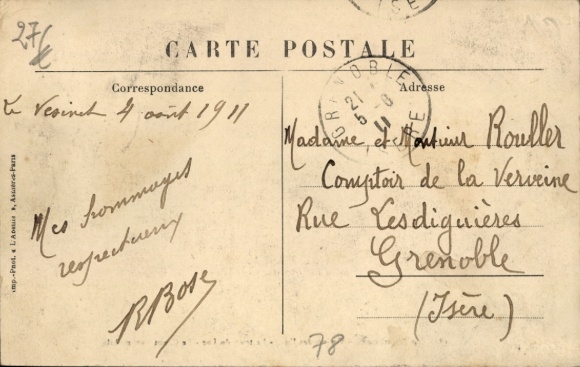 27
CARTE POSTALE
Correspondance
Adresse
Le Vésinet 4 août 1911
Mes hommages
respectueux
R Bose
GRENOBLE
21
5 - 8
11
ISERE
Madame et Monsieur Rouller
Comptoir de la Verveine
Rue Lesdiguières
Grenoble
(Isère)
78
Imp.-Phot. « L'Abeille », Asnières-Paris